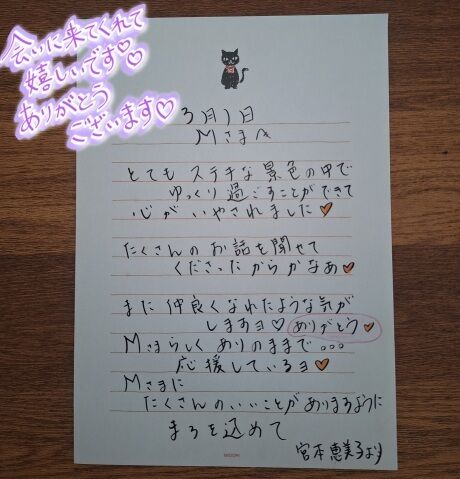 会いに来てくれて
嬉しいです♡♡
ありがとう
ございます♡
3月1日
Mさまへ
とても ステキな 景色の中で
ゆっくり 過ごすことができて
心が いやされました♡
たくさんの お話を聞せて
くださったからかなあ♡
また 仲良くなれたような気が
しますヨ♡ ありがとう♡
Mさまらしく ありのままで。。。
応援しているヨ♡
Mさまに
たくさんのいいことが ありますように
まろを込めて
宮本恵美子より
MIDORI